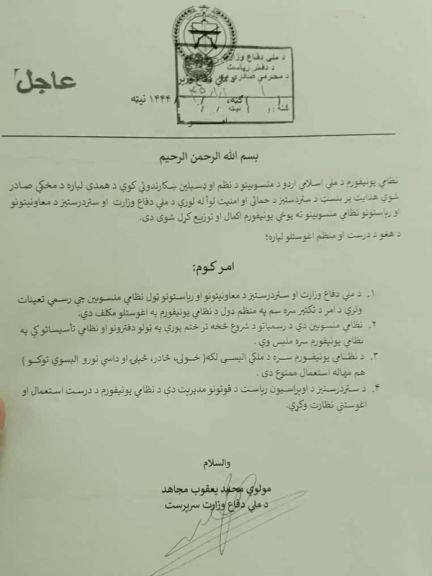 عاجل
د ملي دفاع وزارت
د دفتر ریاست
د محرمې صادرې
گڼه:
۱۴۴۴ نېټه
بسم الله الرحمن الرحیم
نظامي یونیفورم د ملي اسلامي اردو د منسوبینو د نظم او ډسپلین ښکارندوئي کوي د همدې لپاره د مخکې صادر
شوي هدایت پر بنسټ د ستردرستیز د حمائې او امنیت لوأ له لورې د ملي دفاع وزارت او ستردرستیز د معاونیتونو
او ریاستونو نظامي منسوبینو ته پوځي یونیفورم اکمال او توزیع کړل شوی دی.
د هغو د درست او منظم اغوستلو لپاره؛
امر کوم:
۱. د ملي دفاع وزارت او ستردرستیز د معاونیتونو او ریاستونو ټول نظامي منسوبین چې رسمي تعینات
ولري د امر د تکثیر سره سم په منظم ډول د نظامي یونیفورم په اغوستلو مکلف دي.
۲. نظامي منسوبین دې د رسمیاتو د شروع څخه تر ختم پورې په ټولو دفترونو او نظامي تأسیساتو کې په
نظامي یونیفورم سره ملبس وي .
۳. د نظامي یونیفورم سره د ملکي البسې لکه( خولۍ، څادر، څپلۍ او داسې نورو البسوي توکو )
هم مهاله استعمال ممنوع دی .
۴. د ستردرستیز د اوپراسیون ریاست د قوتونو مدیریت دې د نظامي یونیفورم د درست استعمال او
اغوستنې نظارت وکړي.
والسلام
مولوي محمد یعقوب مجاهد
د ملي دفاع وزارت سرپرست